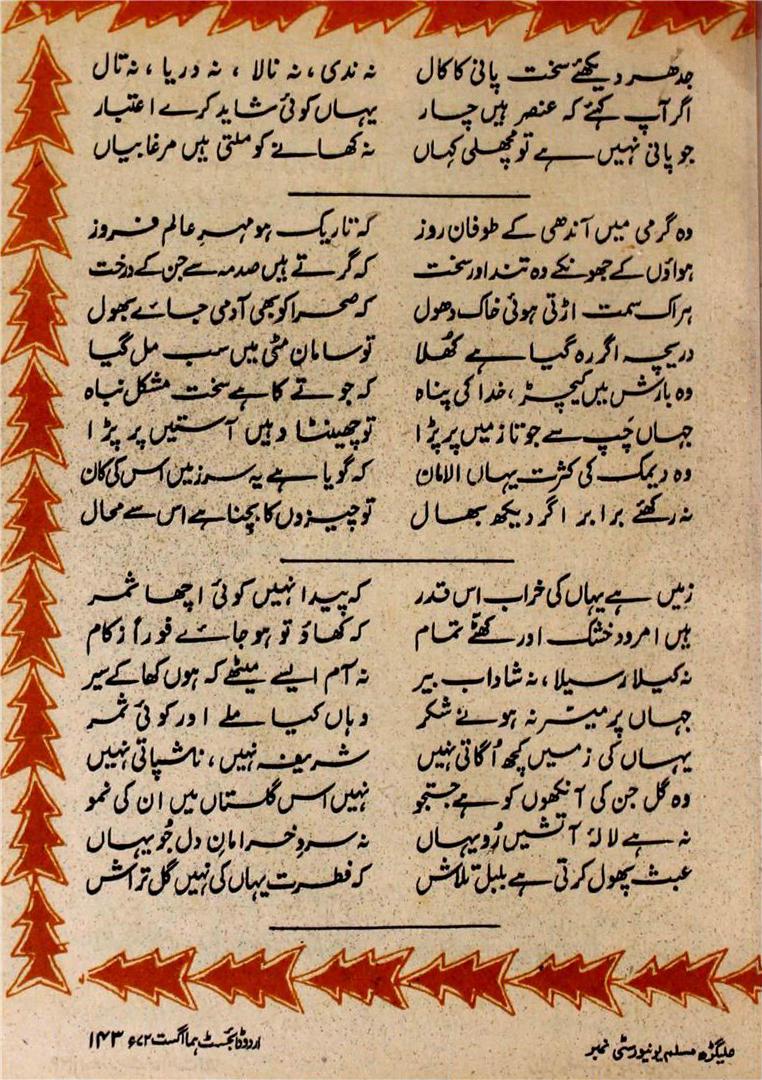 جدھر دیکھئے سخت پانی کا کال نہ ندی، نہ نالا ، نہ دریا ، نہ تال
اگر آپ کہئے کہ عنصر ہیں چار یہاں کوئی شاید کرے اعتبار
جو پانی نہیں ہے تو مچھلی کہاں نہ کھانے کو ملتی ہیں مرغابیاں
وہ گرمی میں آندھی کے طوفان روز کہ تاریک ہو مہرِ عالم فروز
ہواؤں کے جھونکے وہ تند اور سخت کہ گرتے ہیں صدمہ سے جن کے درخت
ہر اک سمت اڑتی ہوئی خاک دھول کہ صحرا کو بھی آدمی جائے بھول
دریچہ اگر رہ گیا ہے کھُلا تو سامان مٹی میں سب مل گیا
وہ بارش میں کیچڑ ، خدا کی پناہ کہ جوتے کا ہے سخت مشکل نباہ
جہاں چَپ سے جوتا زمیں پر پڑا تو چھینٹا وہیں آستیں پر پڑا
وہ دیمک کی کثرت یہاں الامان کہ گویا ہے یہ سرزمیں اس کی کان
نہ رکھئے برابر اگر دیکھ بھال تو چیزوں کا بچنا ہے اس سے محال
زمیں ہے یہاں کی خراب اس قدر کہ پیدا نہیں کوئی اچھا ثمر
ہیں امرود خشک اور کھٹّے تمام کہ کھاؤ تو ہو جائے فوراً زکام
نہ کیلا رسیلا ، نہ شاداب بیر نہ آم ایسے میٹھے کہ ہوں کھا کے سیر
جہاں پر میسّر نہ ہوئے شکر وہاں کیا ملے اور کوئی ثمر
یہاں کی زمیں کچھ اُگاتی نہیں شریفہ نہیں ، ناشپاتی نہیں
وہ گل جن کی آنکھوں کو ہے جستجو نہیں اس گلستاں میں ان کی نمو
نہ ہے لالۂ آتشیں رُو یہاں نہ سروِ خرامانِ دل جُو یہاں
عبث پھول کرتی ہے بلبل تلاش کہ فطرت یہاں کی نہیں گل تراش
علیگڑھ مسلم یونیورسٹی نمبر اردو ڈائجسٹ ہما اگست ۷۲ء ۱۴۳